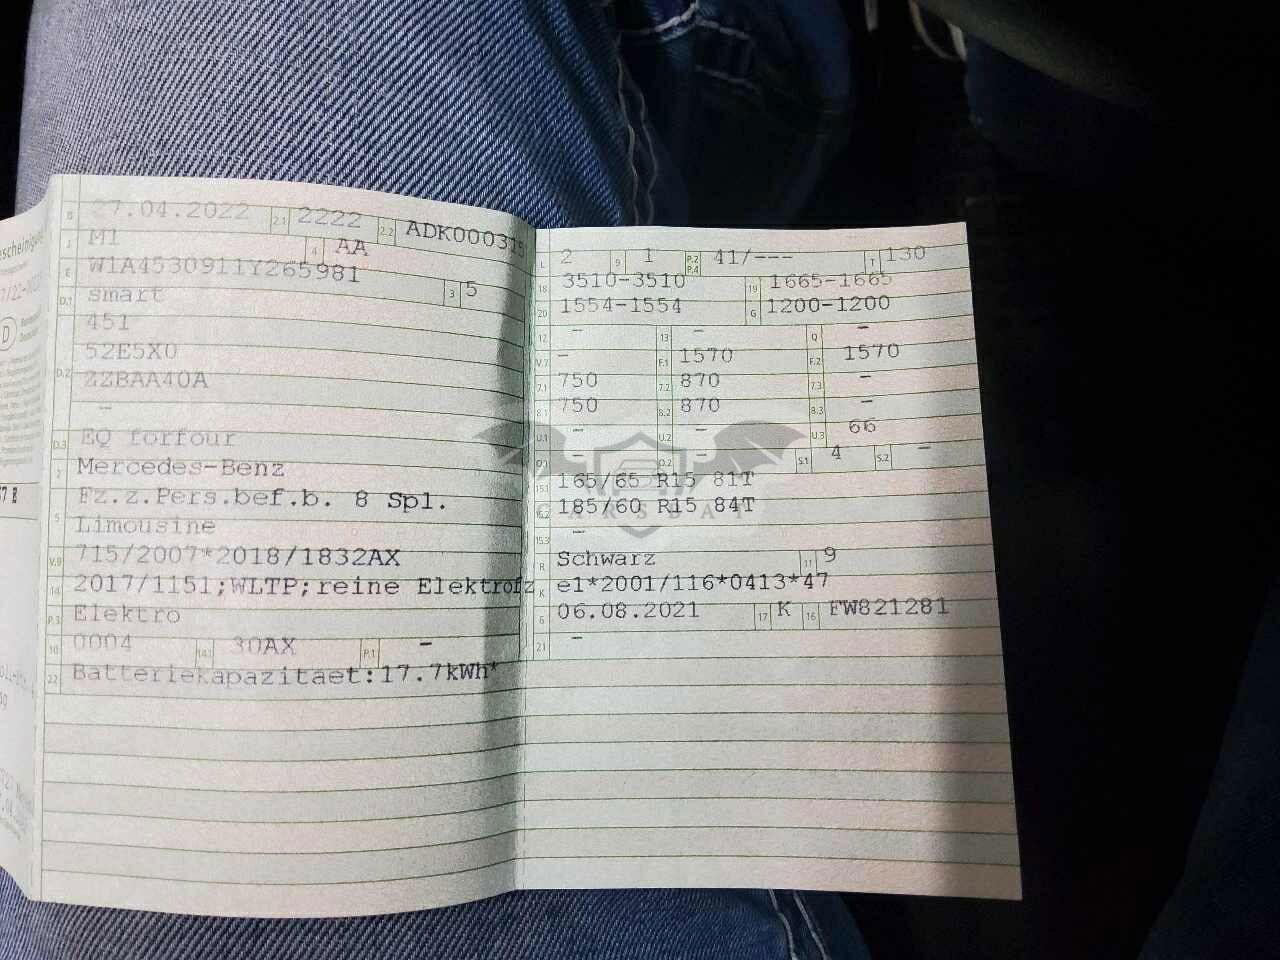 B 27.04.2022 2.1 2222 2.2 ADK000315
J M1 4 AA
E W1A4530911Y265981 3 5
D.1 smart
D.2 451
52E5X0
ZZBAA40A
-
D.3 EQ forfour
2 Mercedes-Benz
5 Fz.z.Pers.bef.b. 8 Spl.
Limousine
V.9 715/2007*2018/1832AX
14 2017/1151;WLTP;reine Elektrofz
P.3 Elektro
10 0004 14.1 30AX P.1 -
22 Batteriekapazitaet:17.7kWh*
L 2 9 1 P.2 P.4 41/--- T 130
18 3510-3510 19 1665-1665
20 1554-1554 G 1200-1200
12 - 13 - Q -
V.7 - F.1 1570 F.2 1570
7.1 750 7.2 870 7.3 -
8.1 750 8.2 870 8.3 -
U.1 - U.2 - U.3 66
O.1 - O.2 - S.1 4 S.2 -
15.1 165/65 R15 81T
15.2 185/60 R15 84T
15.3 -
R Schwarz 11 9
K e1*2001/116*0413*47
6 06.08.2021 17 K 16 FW821281
21 -
CARSBAT